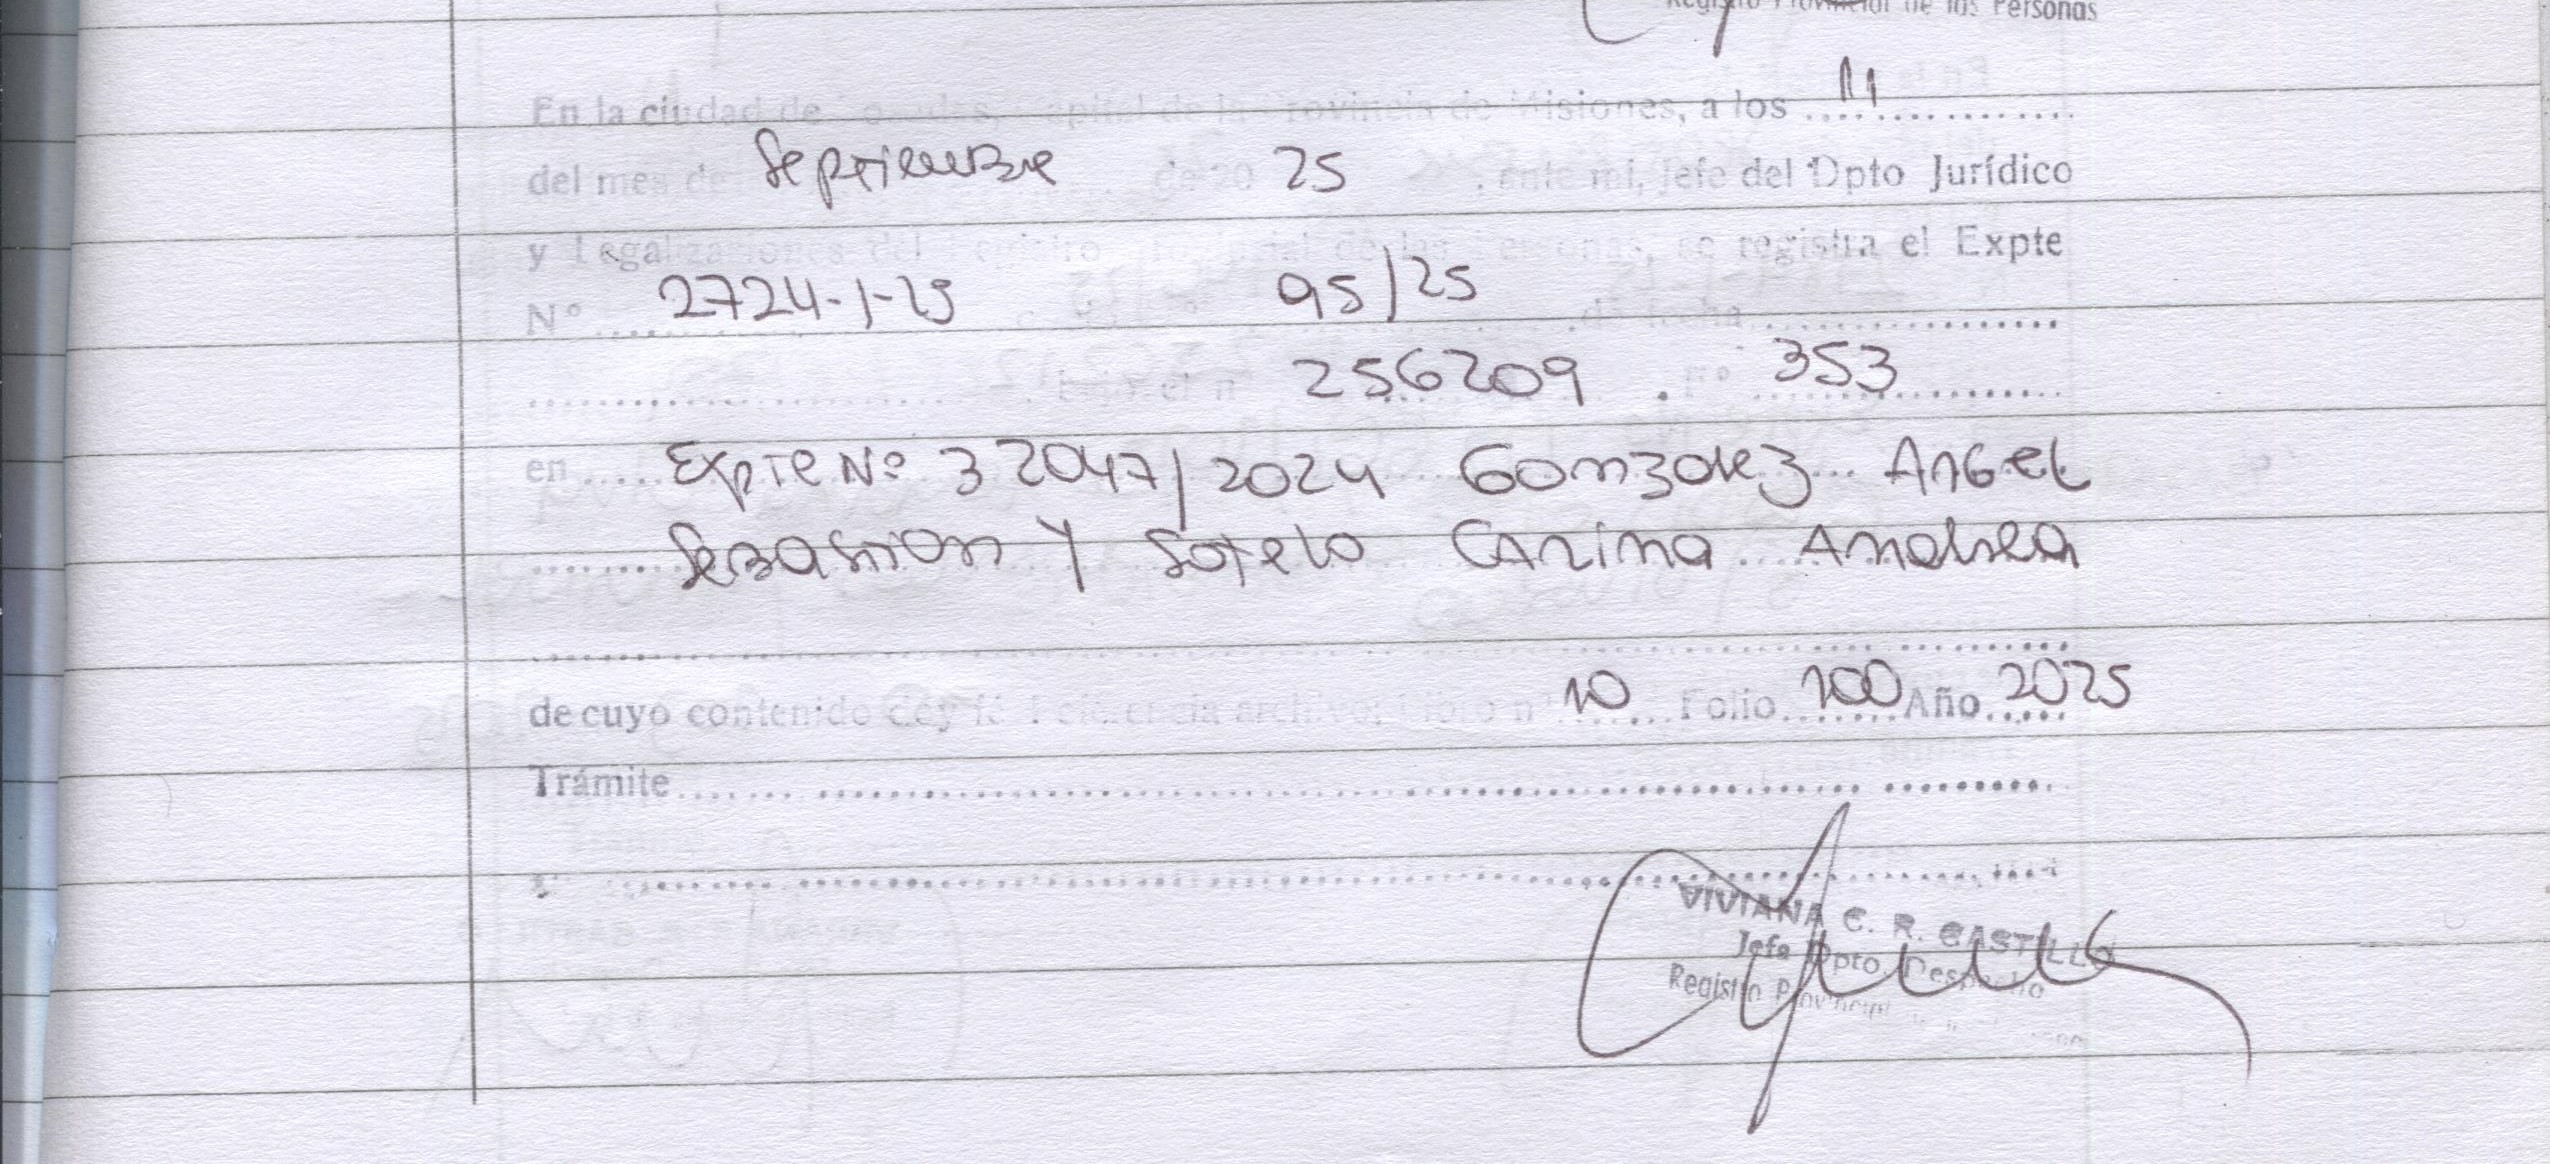 Registro Provincial de las Personas
En la ciudad de Posadas, Capital de la Provincia de Misiones, a los 11
del mes de Septiembre de 20 25, ante mi, Jefe del Dpto Jurídico
y Legalizaciones del Registro Provincial de las Personas, se registra el Expte
Nº 2724-J-25 95/25 de fecha
bajo el nº 256209. nº 353
en Expte Nº 32047/2024 Gonzalez Angel
Sebastian Y Sotelo Carina Andrea
de cuyo contenido doy fe. Referencia archivo: Libro nº 10 Folio 100 Año 2025
Trámite
VIVIANA C. R. CASTILLO
Jefe Dpto. Despacho
Registro Provincial